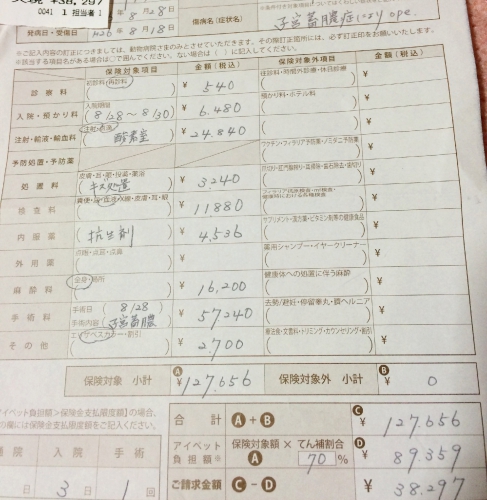 ¥38,297
0041 1 担当者1
8月28日
発病日・受傷日
H26 8月18日
傷病名(症状名)
子宮蓄膿症により ope.
※ご記入内容の訂正につきましては、動物病院さまのみとさせていただきます。その際訂正箇所には、必ず訂正印をお願いいたします。
保険対象項目 金額(税込) 保険対象外項目 金額(税込)
診察料 初診料・再診料 ¥ 540 往診料・時間外診療・休日診療 ¥
入院・預かり料 入院期間 8/28〜8/30 ¥ 6.480 預かり料・ホテル料 ¥
注射・輸液・輸血料 注射・点滴 酸素室 ¥ 24.840 ¥
予防処置・予防薬 ワクチン・フィラリア予防薬・ノミダニ予防薬 ¥
処置料 キズ処置 ¥ 3240 ¥
検査料 ¥ 11880 ¥
内服薬 抗生剤 ¥ 4,536 サプリメント・漢方薬・ビタミン剤等の健康食品 ¥
外用薬 点眼・点耳・点鼻 ¥ 薬用シャンプー・イヤークリーナー ¥
麻酔料 全身・局所 ¥ 16,200 健康体への処置に伴う麻酔 ¥
手術料 手術日 8/28 手術内容 子宮蓄膿 ¥ 57240 去勢/避妊・停留睾丸・臍ヘルニア ¥
その他 エリザベスカラー ¥ 2700 療法食・文書料・トリミング・カウンセリング・割引 ¥
保険対象 小計 A ¥127.656 保険対象外 小計 B ¥ 0
アイペット負担額≧保険金支払限度額】の場合、
の欄には保険金支払限度額をご記入ください。
合計 A + B C ¥ 127.656
アイペット負担額※ 保険対象額 A × てん補割合 70 % D ¥ 89.359
ご請求金額 C − D ¥ 38.297
院 入院 手術
日 3日 1回